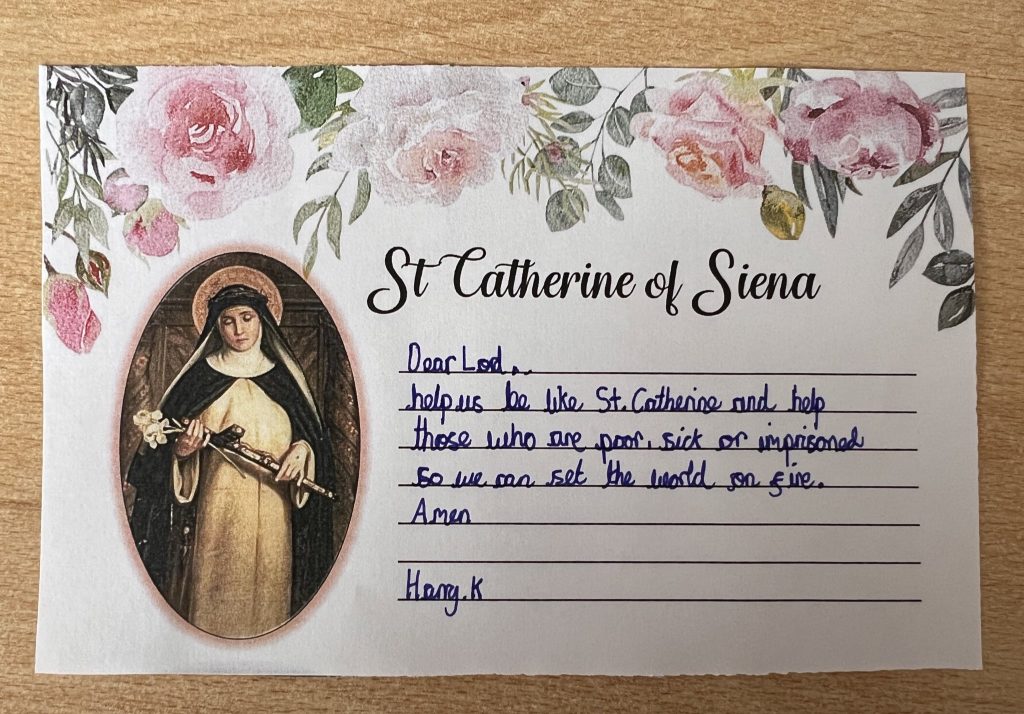 St Catherine of Siena
Dear Lord,
help us be like St. Catherine and help
those who are poor, sick or imprisoned
so we can set the world on fire.
Amen
Harry.K